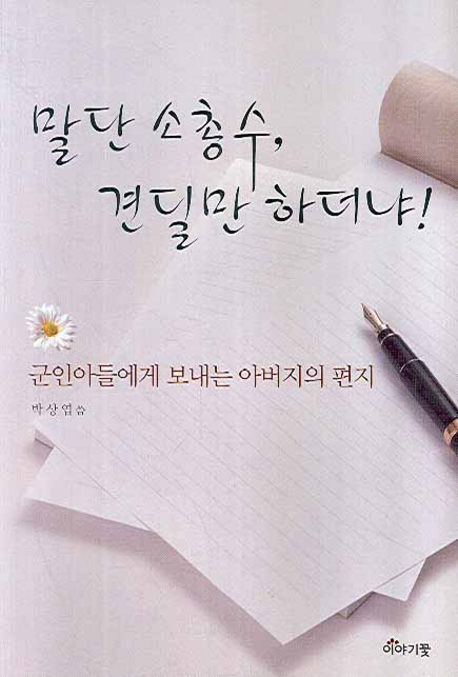 말단 소총수,
견딜만 하더냐!
군인아들에게 보내는 아버지의 편지
박상엽 씀
이야기꽃